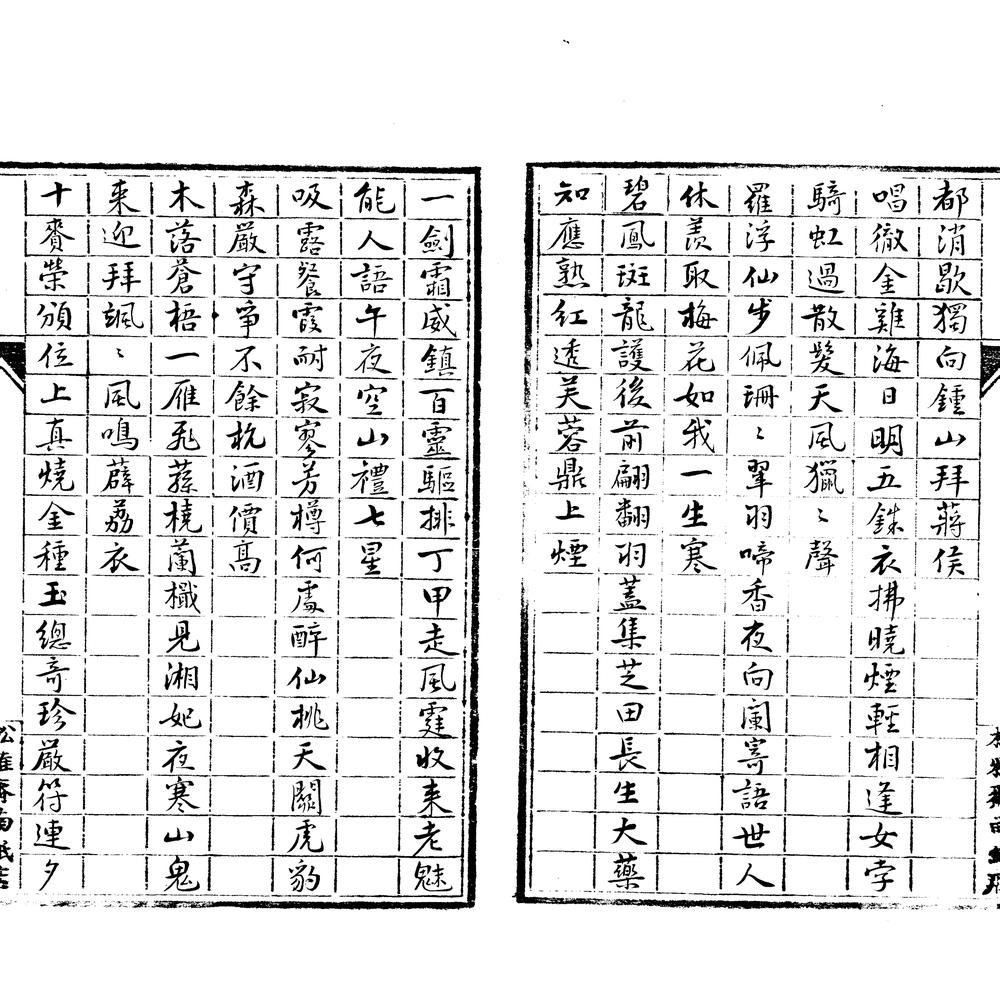 都消歇獨向鍾山拜蔣侯
唱徹金雞海日明五銖衣拂曉煙輕相逢女字
騎虹過散髮天風獵〻聲
羅浮仙步佩珊〻翠羽啼香夜向闌寄語世人
休羨取梅花如我一生寒
碧鳳斑龍護後前翩翻羽蓋集芝田長生大藥
知應熟紅透芙蓉鼎上煙
一劍霜威鎮百靈驅排丁甲走風霆收来老魅
能人語午夜空山禮七星
吸露餐霞耐寂寥芳樽何處醉仙桃天關虎豹
森嚴守爭不餘杭酒價高
木落蒼梧一雁飛蓀橈蘭檝見湘妃夜寒山鬼
来迎拜颯〻風鳴薜荔衣
十賚榮頒位上真燒金種玉總奇珍嚴符連夕